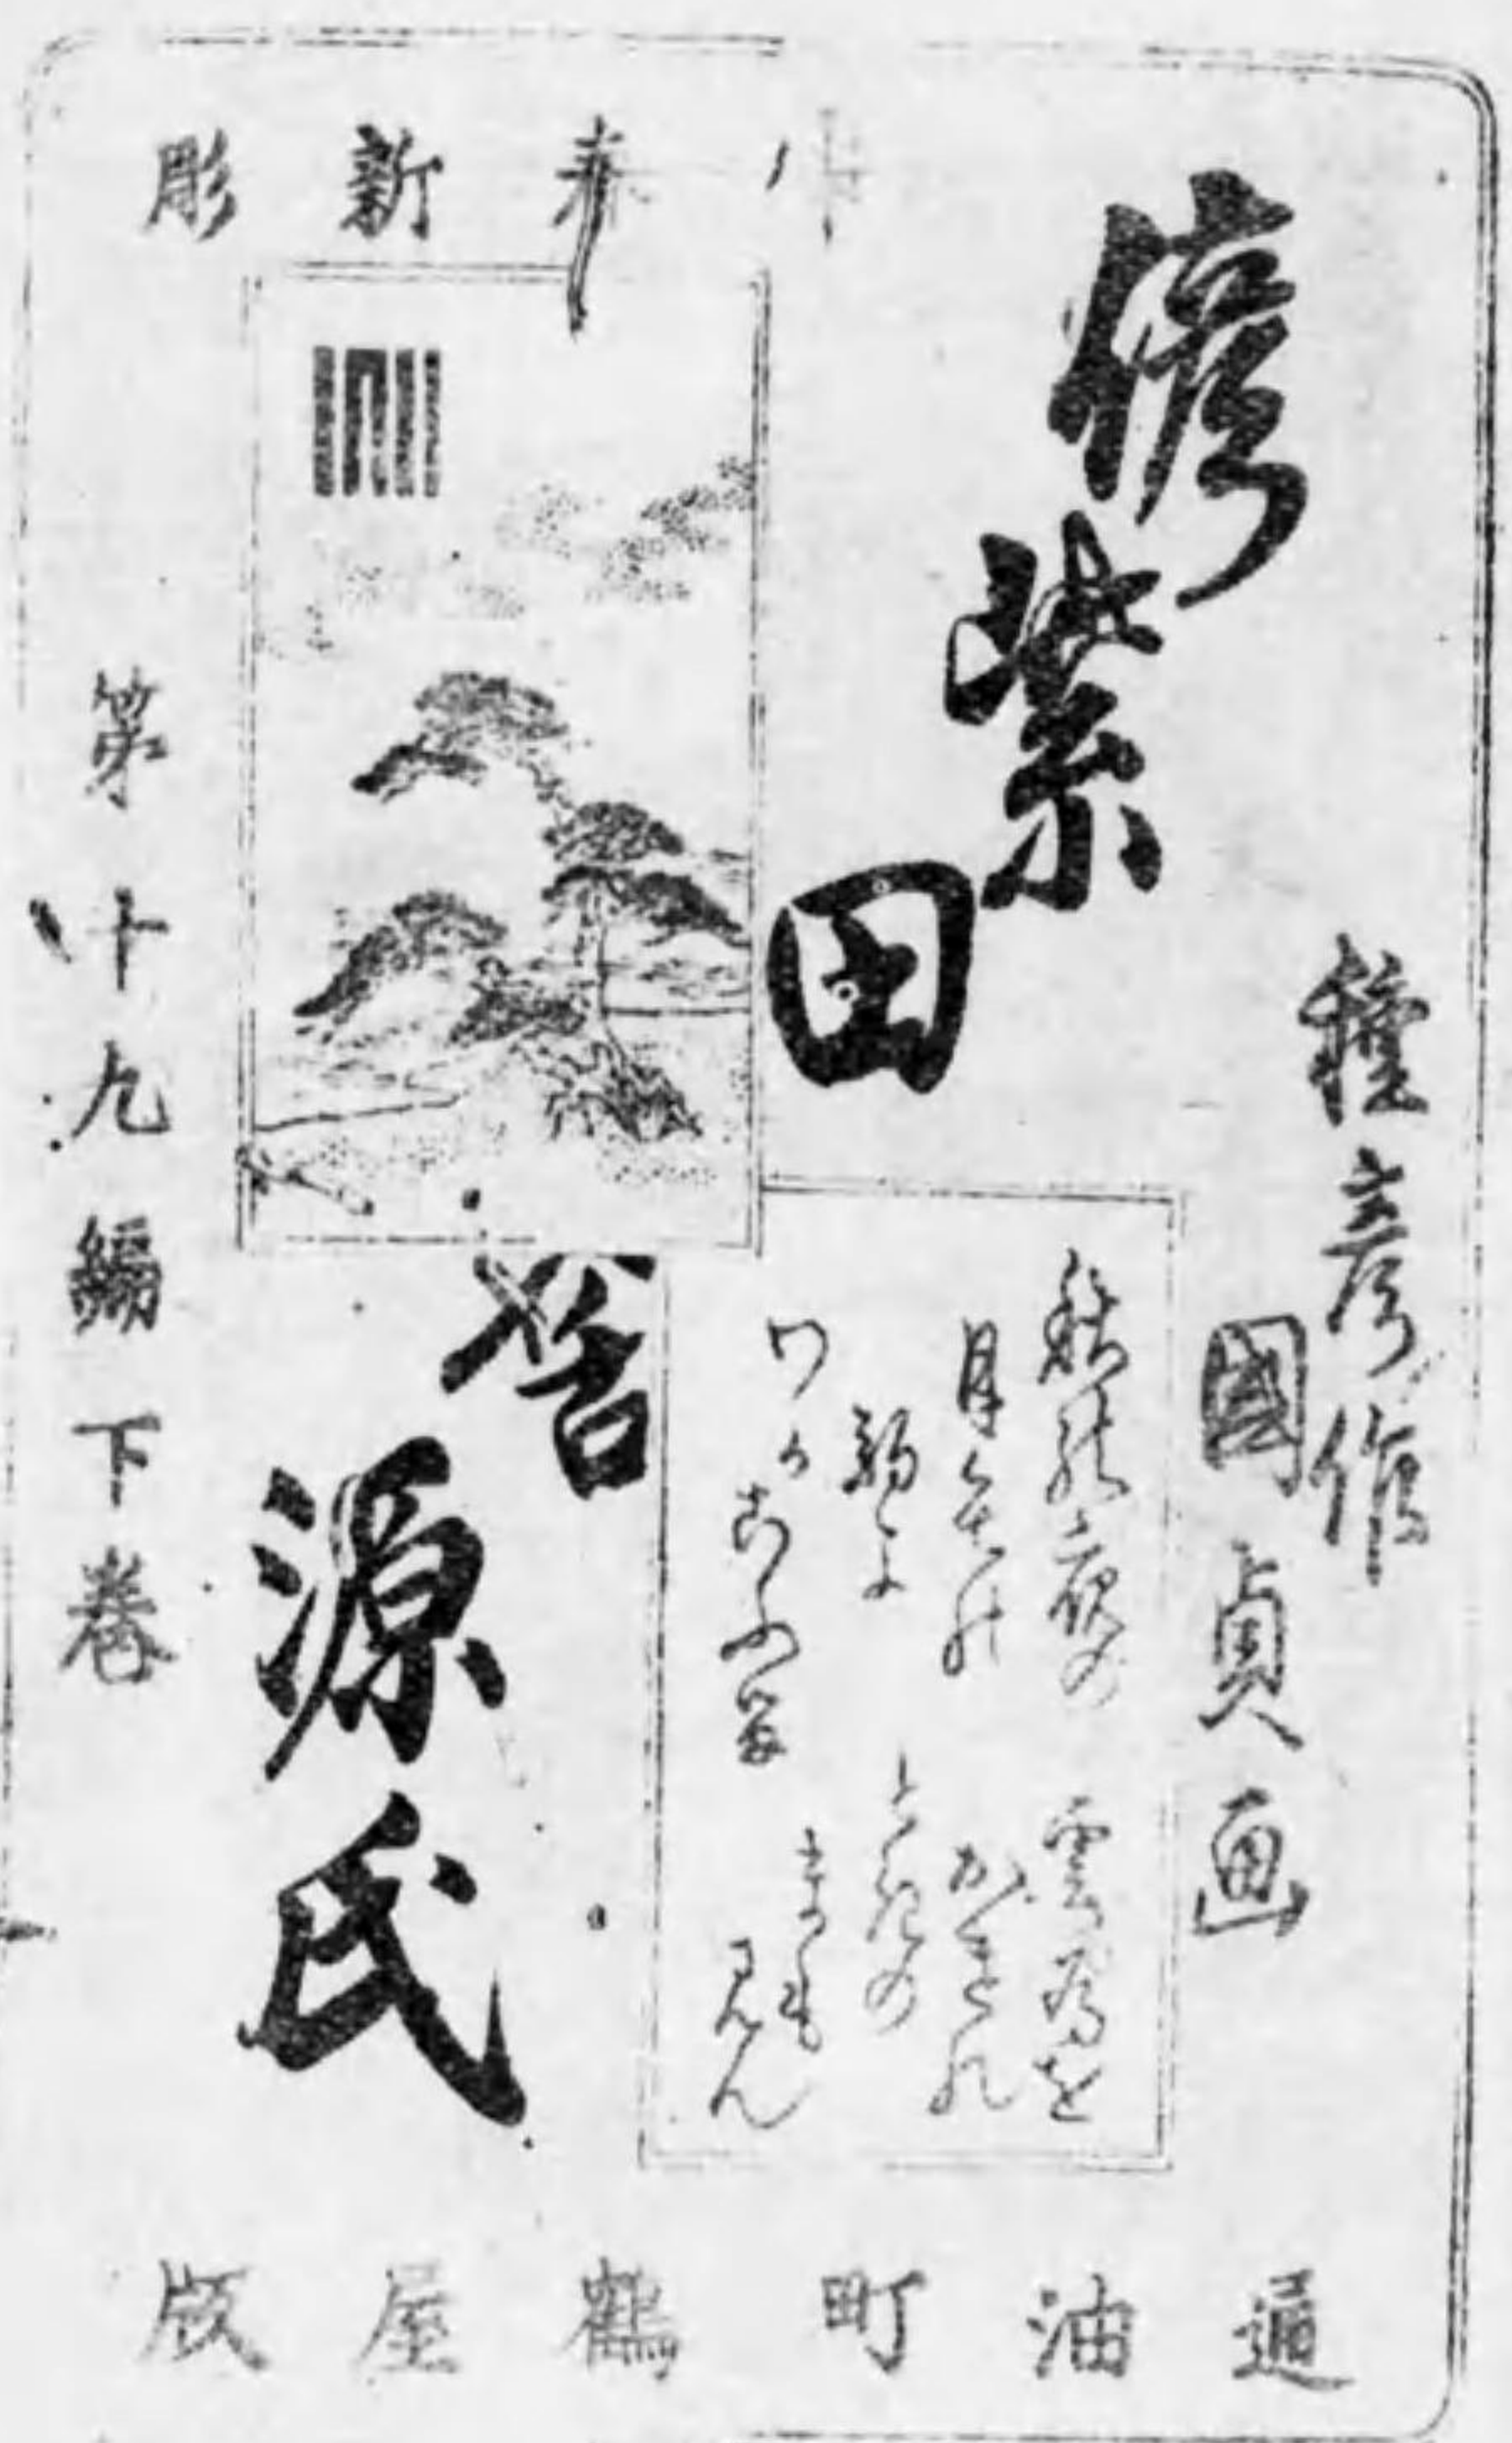 春新彫
偐紫田舎源氏
種彦作
國貞画
秋の夜の
月毛の
駒よ
わか
こふる
雲ゐを
かけれ
ときの
まも
みん
第十九編下巻
通油町鶴屋版